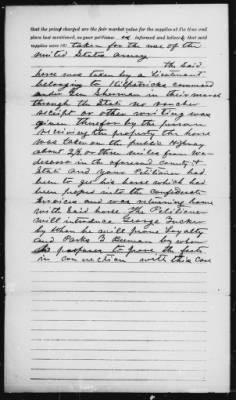 that the prices charged are the fair market value for the supplies at the time and
place last mentioned, as your petitioner is informed and believes; that said
supplies were (6) taken for the use of the
United States Army
The Said
horse was taken by a Lieutenant
belonging to Kilpatricks command
under Gen Sherman in their march
through the State no voucher
receipt or other writing was
given therefor by the person
receiving the property the horse
was taken on the public Highway
about 2½ or three miles from
in the aforesaid county &
State and your Petitioner had
been to get his horse which had
been pressed into the Confederate
Services and was returning home
with said horse The Petitioner
will introduce George Tucker
by whom he will prove Loyalty
and Parks B Beeman by whom
he proposes to prove the facts
in connection with this case